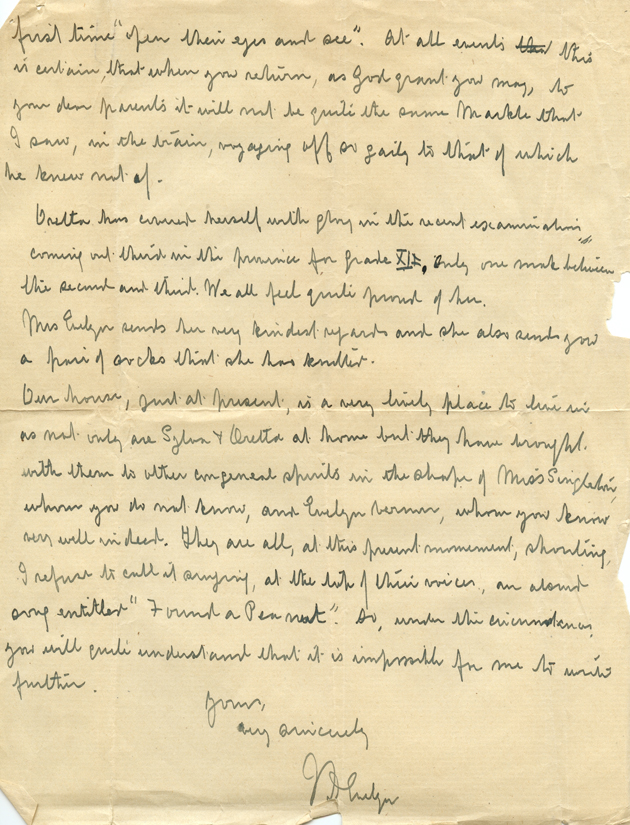 first time "open their eyes and see". At all events this
is certain, that when you return, as God grant you may, to
your dear parents it will not be quite the same Markle that
I saw, in the train, voyaging off so gaily to that of which
he knew not of.
Oretta has covered herself with glory in the recent examinations
coming out third in the province for Grade XII, only one mark between
the second and third. We all feel quite proud of her.
Mrs Evelyn sends her very kindest regards and she also sends you
a pair of socks that she has knitted.
Our house, just at present, is a very lively place to live in
as not only are Sylva & Oretta at home but they have brought
with them to other congenial spirits in the shape of Miss Singleton,
whom you do not know, and Evelyn Vernon, whom you know
very well indeed. They are all, at this present momement, shouting,
I refuse to call it singing, at the top of their voices, an absurd
song entitled "I Found a Peanut". So, under the circumstances,
you will quite understand that it is impossible for me to write
further.
Yours,
very sincerely
Evelyn